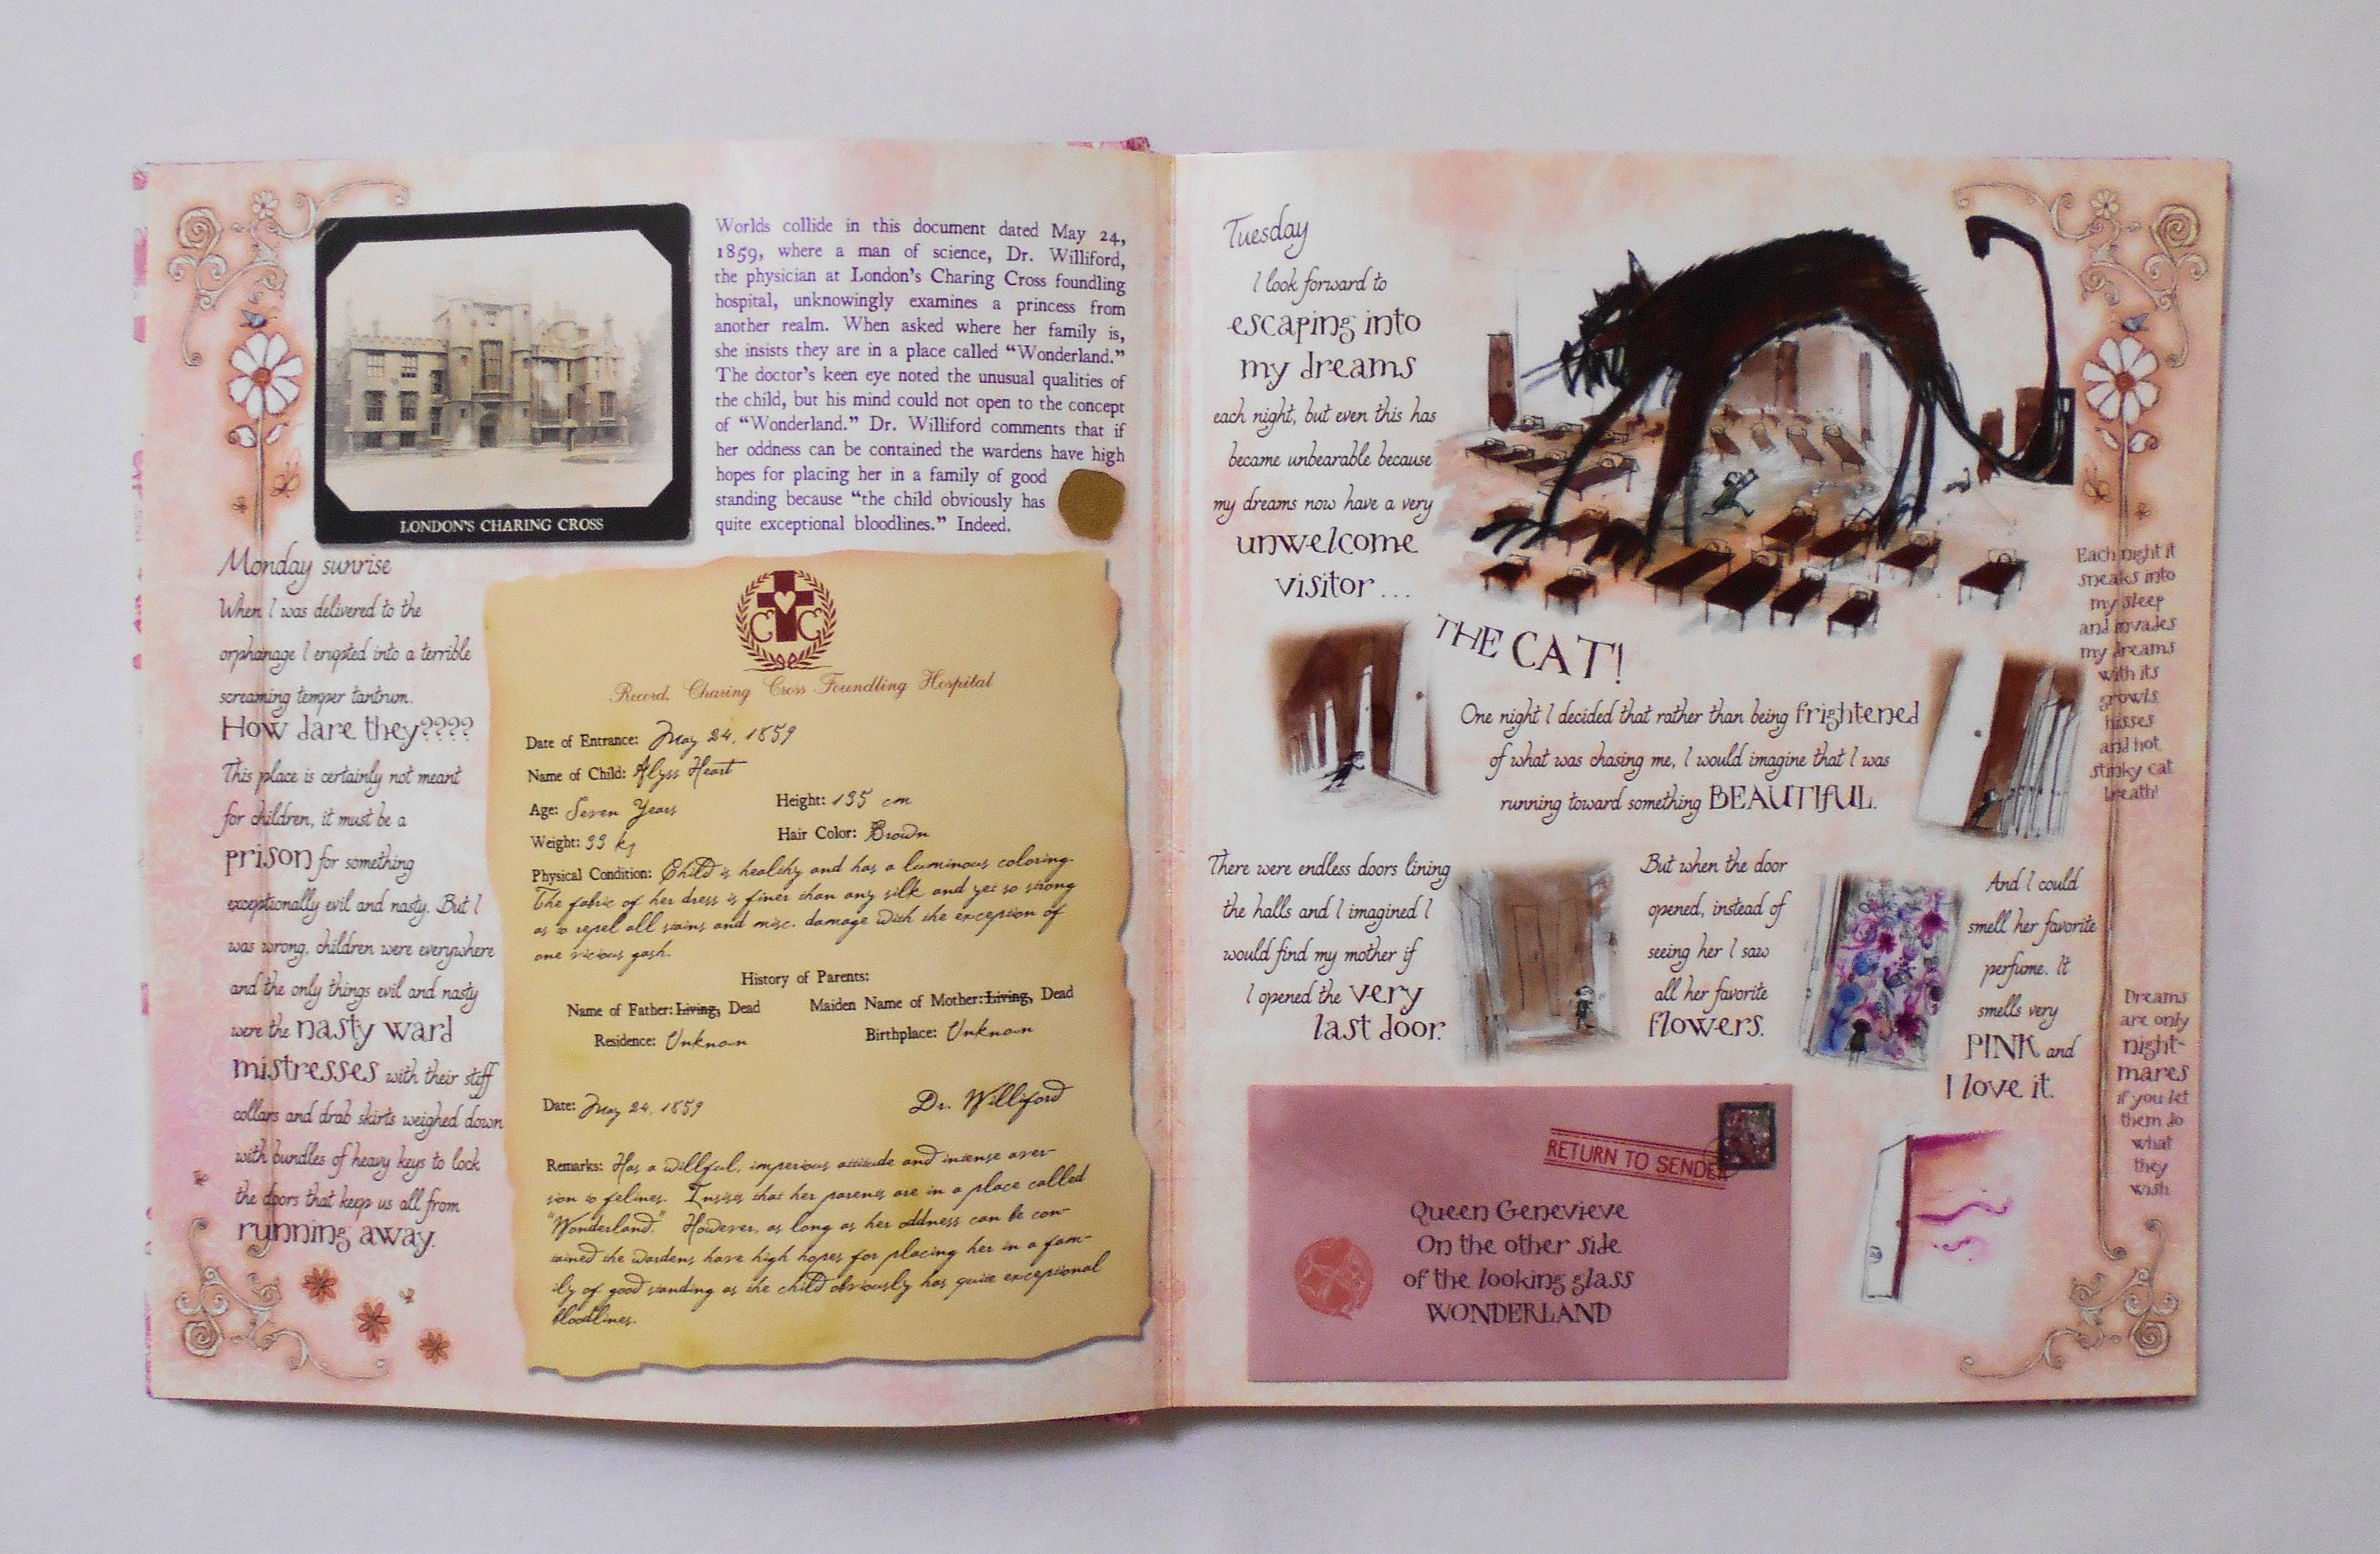 LONDON'S CHARING CROSS
Worlds collide in this document dated May 24,
1859, where a man of science, Dr. Williford,
the physician at London's Charing Cross foundling
hospital, unknowingly examines a princess from
another realm. When asked where her family is,
she insists they are in a place called "Wonderland."
The doctor's keen eye noted the unusual qualities of
the child, but his mind could not open to the concept
of "Wonderland." Dr. Williford comments that if
her oddness can be contained the wardens have high
hopes for placing her in a family of good
standing because "the child obviously has
quite exceptional bloodlines." Indeed.
Monday sunrise
When I was delivered to the
orphanage I erupted into a terrible
screaming temper tantrum.
How dare they????
This place is certainly not meant
for children, it must be a
prison for something
exceptionally evil and nasty. But I
was wrong, children were everywhere
and the only things evil and nasty
were the nasty ward
mistresses with their stiff
collars and drab skirts weighed down
with bundles of heavy keys to lock
the doors that keep us all from
running away.
C C
Record, Charing Cross Foundling Hospital
Date of Entrance: May 24, 1859
Name of Child: Alyss Heart
Age: Seven Years Height: 135 cm
Weight: 33 kg Hair Color: Brown
Physical Condition: Child is healthy and has a luminous coloring.
The fabric of her dress is finer than any silk and yet so strong
as to repel all stains and misc. damage with the exception of
one vicious gash.
History of Parents:
Name of Father: Living, Dead Maiden Name of Mother: Living, Dead
Residence: Unknown Birthplace: Unknown
Date: May 24, 1859 Dr. Williford
Remarks: Has a willful, imperious attitude and intense aver-
sion to felines. Insists that her parents are in a place called
"Wonderland." However, as long as her oddness can be con-
tained the wardens have high hopes for placing her in a fam-
ily of good standing as the child obviously has quite exceptional
bloodlines.
Tuesday
I look forward to
escaping into
my dreams
each night, but even this has
became unbearable because
my dreams now have a very
unwelcome
visitor ...
THE CAT!
One night I decided that rather than being frightened
of what was chasing me, I would imagine that I was
running toward something BEAUTIFUL.
Each night it
sneaks into
my sleep
and invades
my dreams
with its
growls
hisses
and hot
stinky cat
breath!
There were endless doors lining
the halls and I imagined I
would find my mother if
I opened the very
last door.
But when the door
opened, instead of
seeing her I saw
all her favorite
flowers.
And I could
smell her favorite
perfume. It
smells very
PINK and
I love it.
Dreams
are only
night-
mares
if you let
them do
what
they
wish
RETURN TO SENDER
Queen Genevieve
On the other side
of the looking glass
WONDERLAND